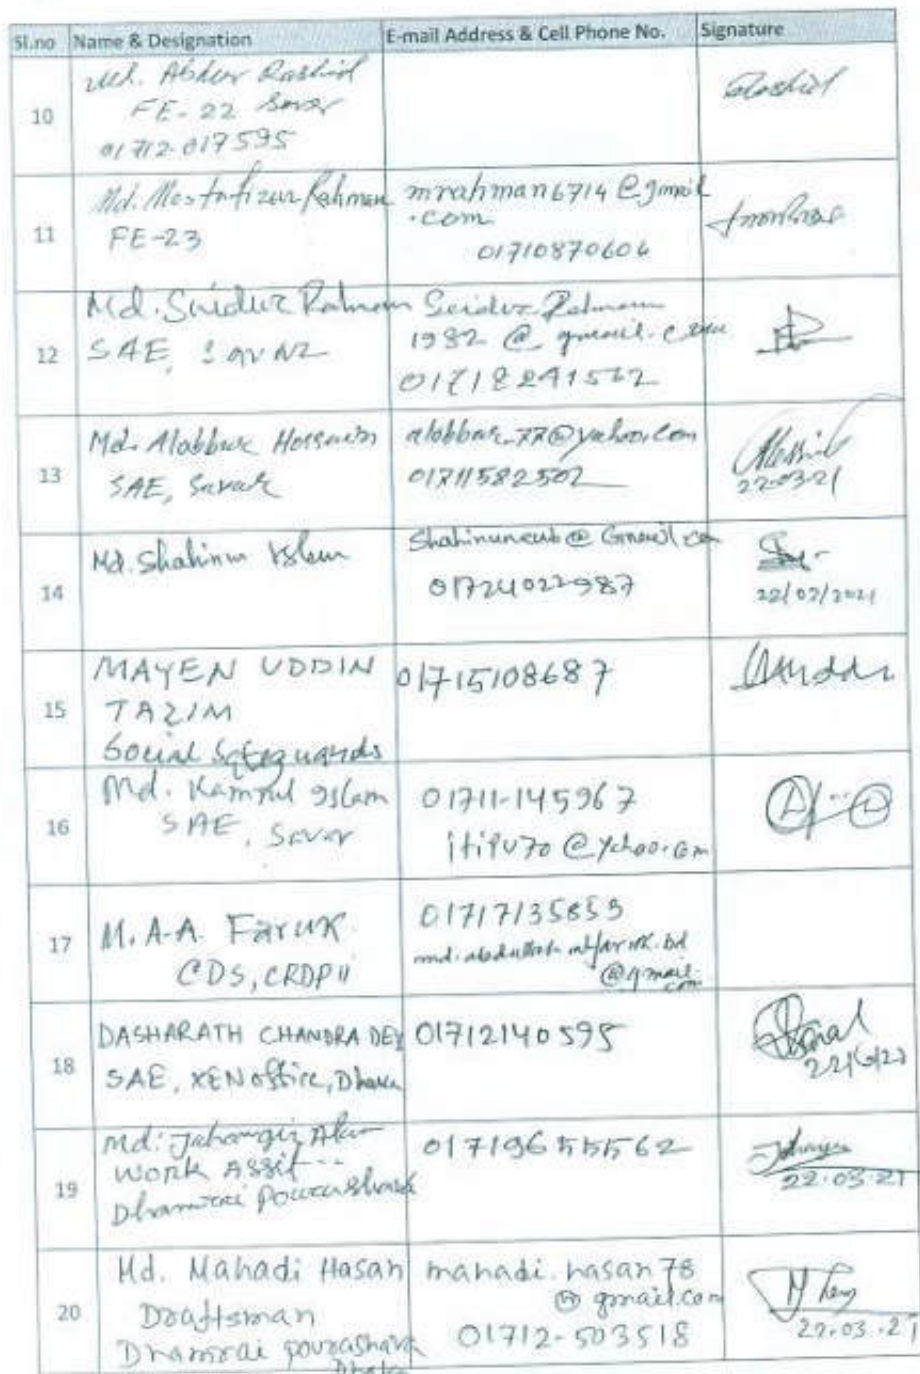 Sl.no Name & Designation E-mail Address & Cell Phone No. Signature
10
Md. Abdur Rashid
FE-22 Savar
01712-017595
Rashid
11
Md. Mostafizur Rahman
FE-23
mrahman6714@gmail
.com
01710870606
12
Md. Saidur Rahman
SAE, Savar
Saidur Rahman
1982 @ gmail.com
13
Md. Alabbur Hossain
SAE, Savar
alabbur_77@yahoo.com
01711582502
22.03.21
14
Md. Shahinur Islam
01724022987
15
MAYEN UDDIN
TAZIM
Social Safeguards
01715108687
16
Md. Kamrul Islam
SAE, Savar
01711-145967
itipu70@yahoo.com
17
M. A-A. Faruk
CDS, CRDP II
01717135853
@gmail.
com
18
DASHARATH CHANDRA DEY
SAE, XEN office, Dhaka
01712140595
19
Md. Jahangir Alam
Work Assit..
Dhamrai Pourashava
01719655562
22.03.21
20
Md. Mahadi Hasan
Draftsman
Dhamrai pourashava
Dhaka
mahadi.hasan78
@gmail.com
01712-503518
22.03.21